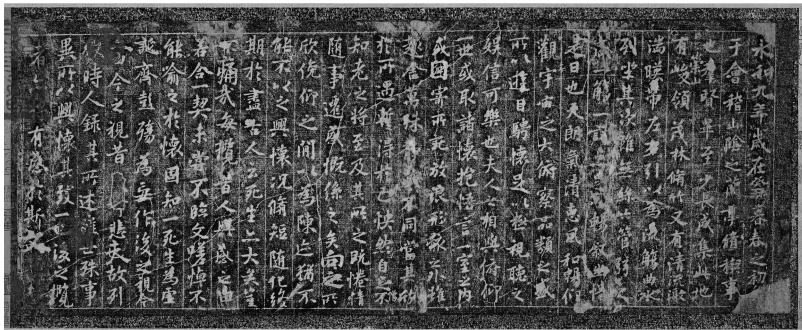 永和九年歲在癸丑暮春之初
于會稽山陰之蘭亭脩稧事
也群賢畢至少長咸集此地
有峻領茂林脩竹又有清流激
湍暎帶左右引以為流觴曲水
列坐其次雖無絲竹管弦之
一觴一詠亦足以暢敘幽情
是日也天朗氣清惠風和暢仰
觀宇宙之大俯察品類之盛
所以遊目騁懷足以極視聽之
娛信可樂也夫人之相與俯仰
一世或取諸懷抱悟言一室之內
或因寄所託放浪形骸之外雖
趣舍萬殊靜躁不同當其欣
於所遇暫得於己快然自足不
知老之將至及其所之既惓情
隨事遷感慨係之矣向之所
欣俛仰之間以為陳迹猶不
能不以之興懷況脩短隨化終
期於盡古人云死生亦大矣豈
不痛哉每攬昔人興感之由
若合一契未嘗不臨文嗟悼不
能喻之於懷固知一死生為虛
誕齊彭殤為妄作後之視今
亦今之視昔悲夫故列
敘時人錄其所述雖世殊事
異所以興懷其致一也後之攬
者亦有感於斯文